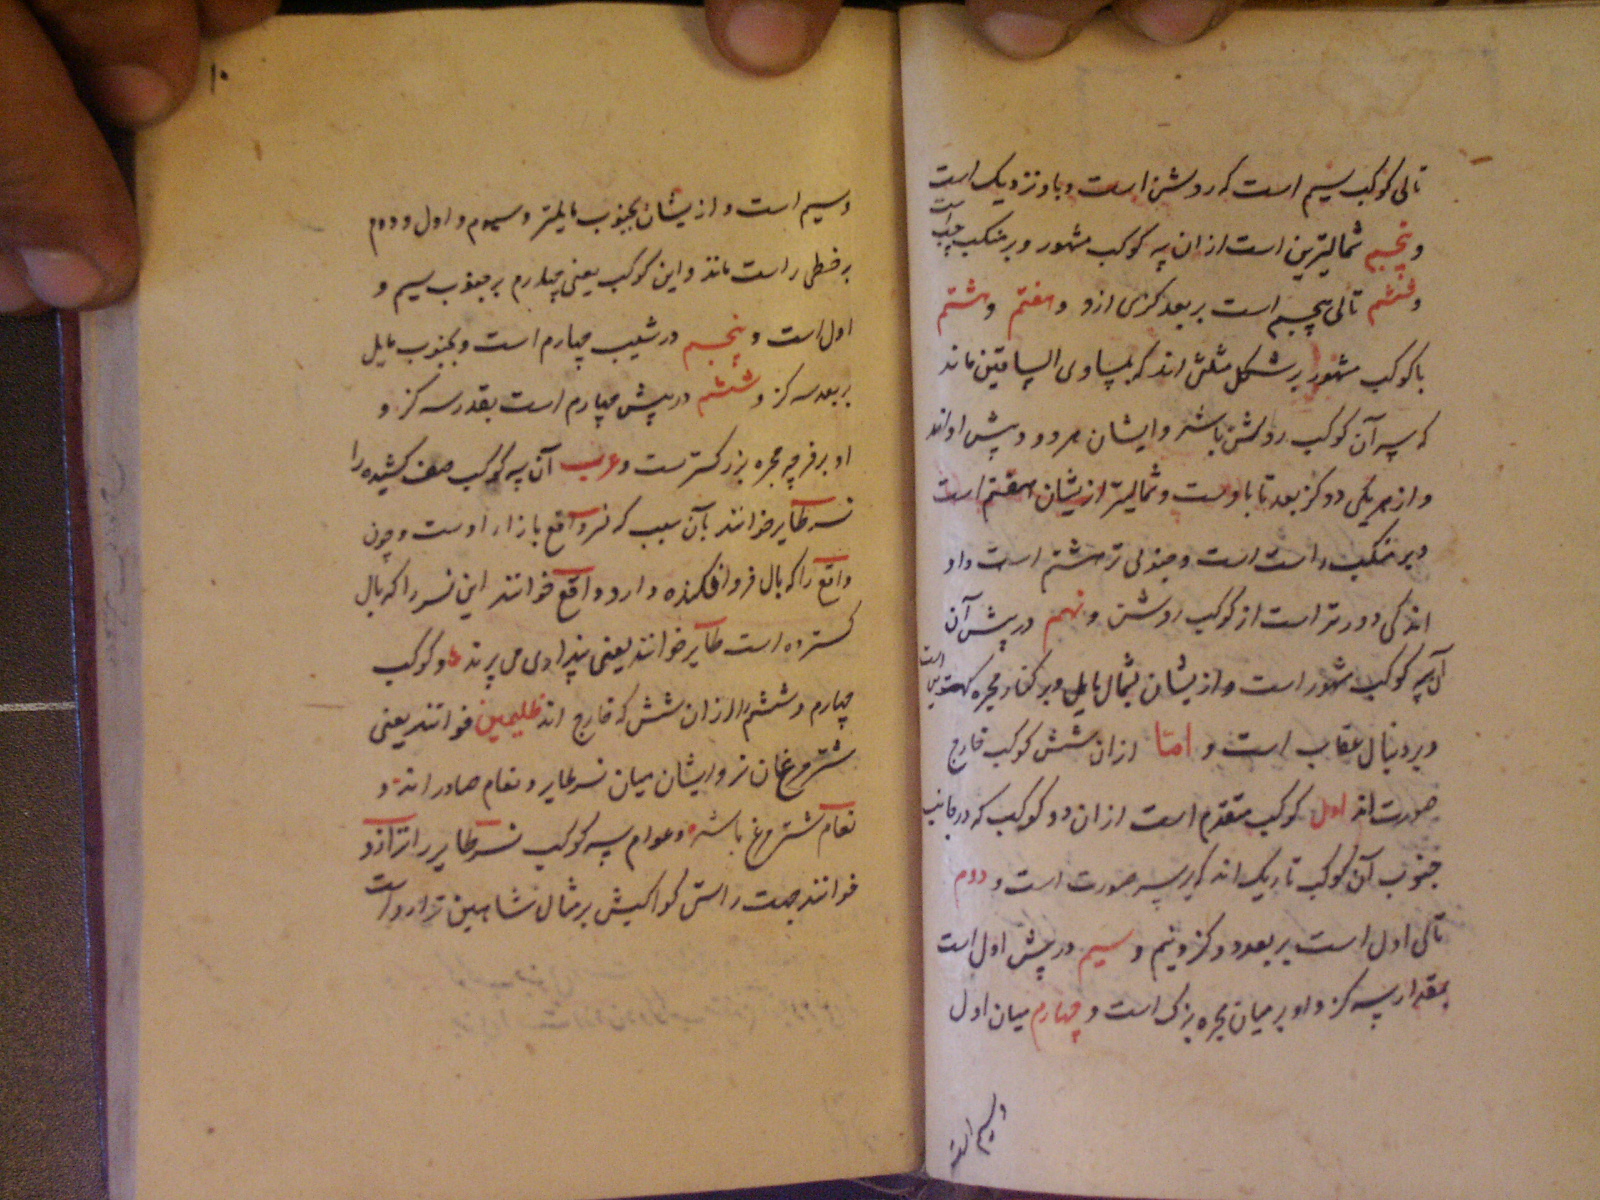 تالی کوکب سیم است که روشن است و باو نزدیک است
و پنجم شمالیترین است ازان سه کوکب مشهور و بر منکب چپ است
و ششم تالی پنجم است بر بعد کزی ازو و هفتم و هشتم
با کوکب مشهور بر شکل مثلثی اند که بمساوی الساقین ماند
که سه آن کوکب روشن باشد و ایشان هر دو در پیش او اند
و از هر یکی دو کز بعد تا باوست و شمالیتر ازیشان هفتم است
و بر منکب راست است و جنوبی تر هشتم است و او
اندکی دورتر است از کوکب روشن و نهم در پیش آن
آن سه کوکب مشهور است و ازیشان بشمال مایل و بر کنار مجره کهتر است
و بر دنبال عقاب است و اما ازان شش کوکب خارج
صورت اند اول کوکب متقدم است ازان دو کوکب که در جانب
جنوب آن کوکب تاریک اند که بر سر صورت است و دوم
تالی اول است بر بعد دو کز و نیم و سیم در پیش اول است
بمقدار سه کز و او بر میان مجره بزرک است و چهارم میان اول
و سیم است
۱۰
و سیم است و ازیشان بجنوب مایلتر و سیوم و اول و دوم
بر خطی راست ماند و این کوکب یعنی چهارم بر جنوب سیم و
اول است و پنجم در شیب چهارم است و بجنوب مایل
بر بعد سه کز و ششم در پیش چهارم است بقدر سه کز و
او بر فرجه مجره بزرکترست و عرب آن سه کوکب صف کشیده را
نسر طایر خوانند بآن سبب که نسر واقع بازاء اوست و چون
واقع را که بال فرو افکنده دارد واقع خوانند این نسر را که بال
کسترده است طایر خوانند یعنی پنداری می پرند و کوکب
چهارم و ششم را ازان شش که خارج اند ظلیمین خوانند یعنی
شترمرغان نر و ایشان میان نسر طایر و نعام صادر اند و
نعام شترمرغ باشد و عوام سه کوکب نسر طایر را ترازو
خوانند جهت راستی کواکبش بر مثال شاهین ترازو است